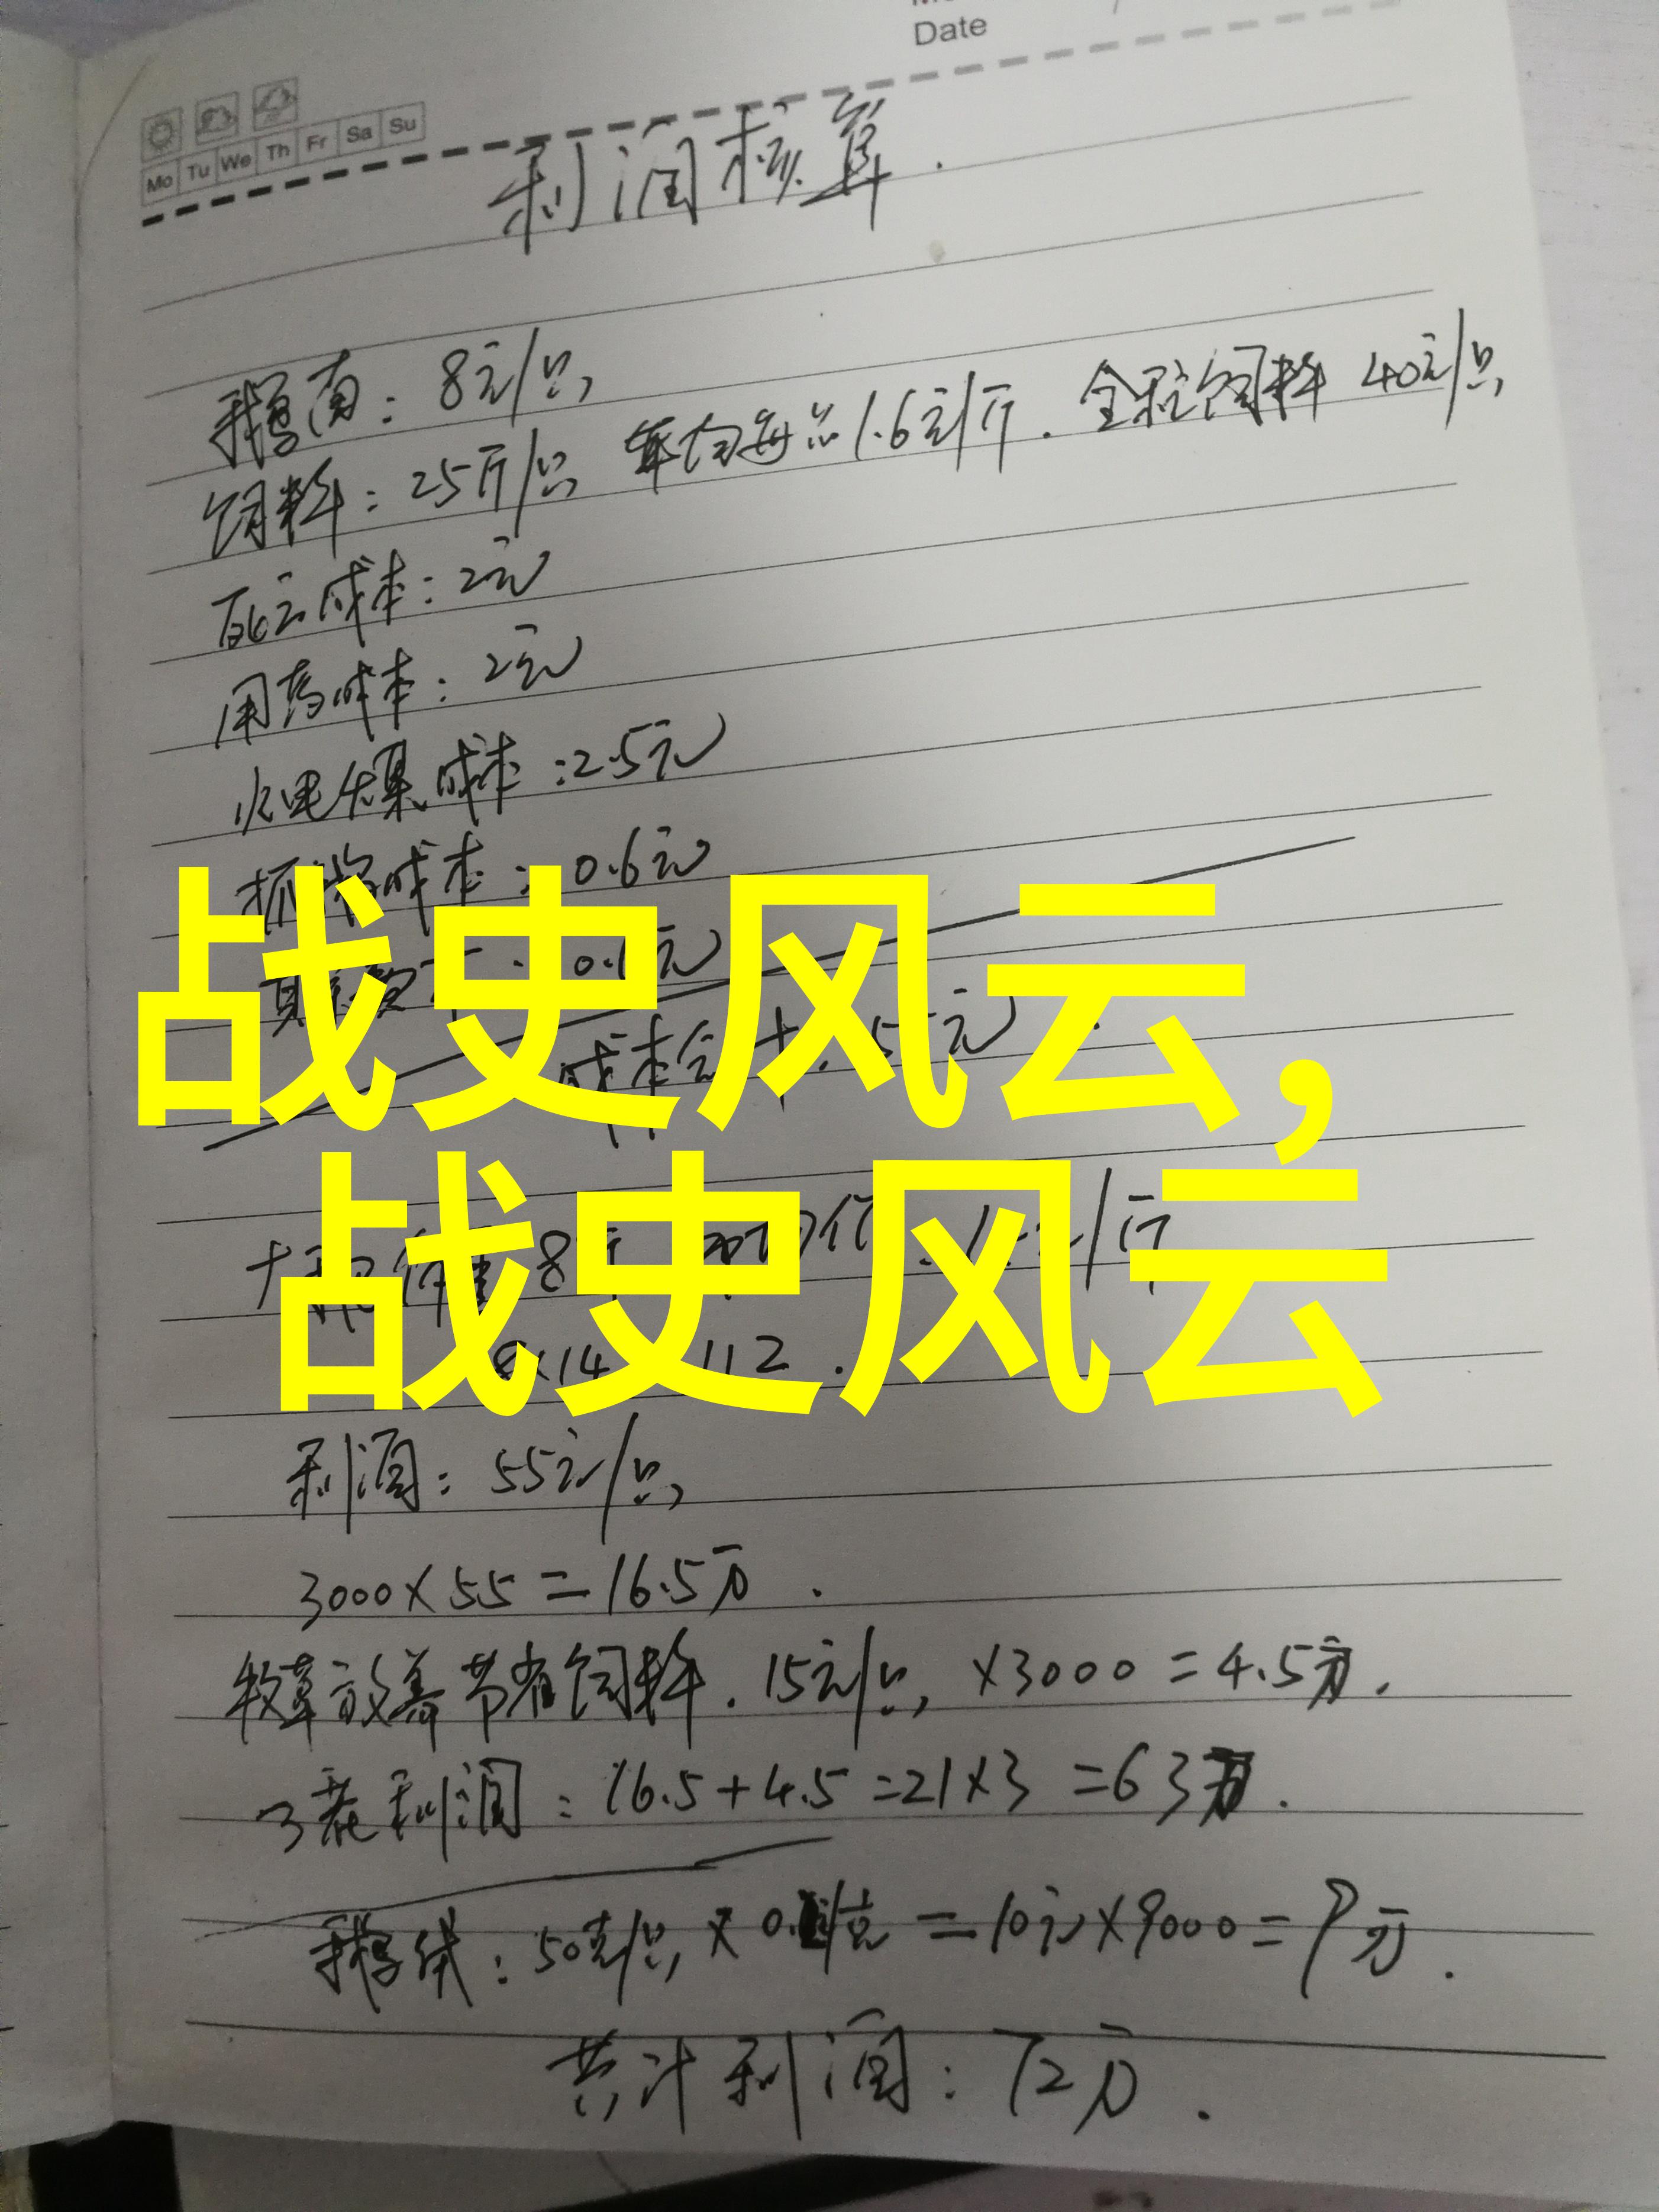 Date
Mo Tu We Th Fr Sa Su
利润核算.
鹅苗: 8元/只
饲料: 25斤/只 每只1.6元/斤. 全程饲料 40元/只
死亡成本: 2元
用药成本: 2元
水电煤成本: 2.5元
抓鹅成本: 0.6元
0.1元
战史风云,
成本合计: 5 元
战史风云
8 元/斤
8×14 112.
利润: 55元/只
3000×55=16.5万.
牧草放养节省饲料. 15元/只 ×3000=4.5万.
3茬利润: 16.5+4.5=21×3=63万.
鹅绒: 50克/只 × /克 =10元×9000=9万.
共计利润: 72万.